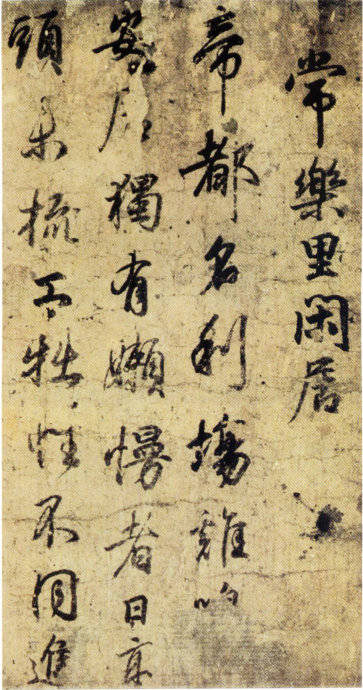 常樂里閑居
帝都名利場雞鳴
安居獨有嬾慢者日高
頭未梳工拙性不同進